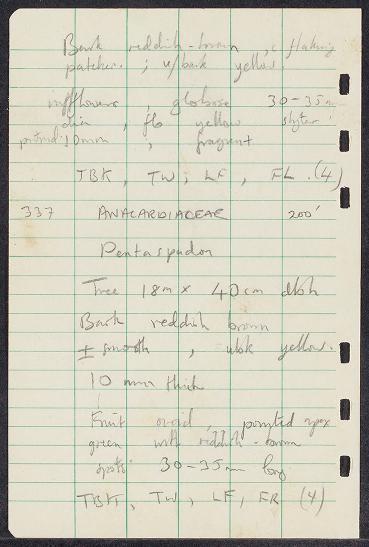 Bark reddish-brown, c flaking
patches. ; u/bark yellow.
inflflowers, globose 30-35m
dia, flo yellow styles
protrud 10mm, fragrent
TBK, TW, LF, FL. (4)
337 ANACARDIACEAE 200'
Pentaspadon
Tree 18m x 40cm dbh
Bark reddish brown
± smooth, ubk yellow.
10 mm thick
Fruit ovoid, ponyted apex
green with reddish-brown
spots 30-35mm long
TBK, TW, LF, FR (4)